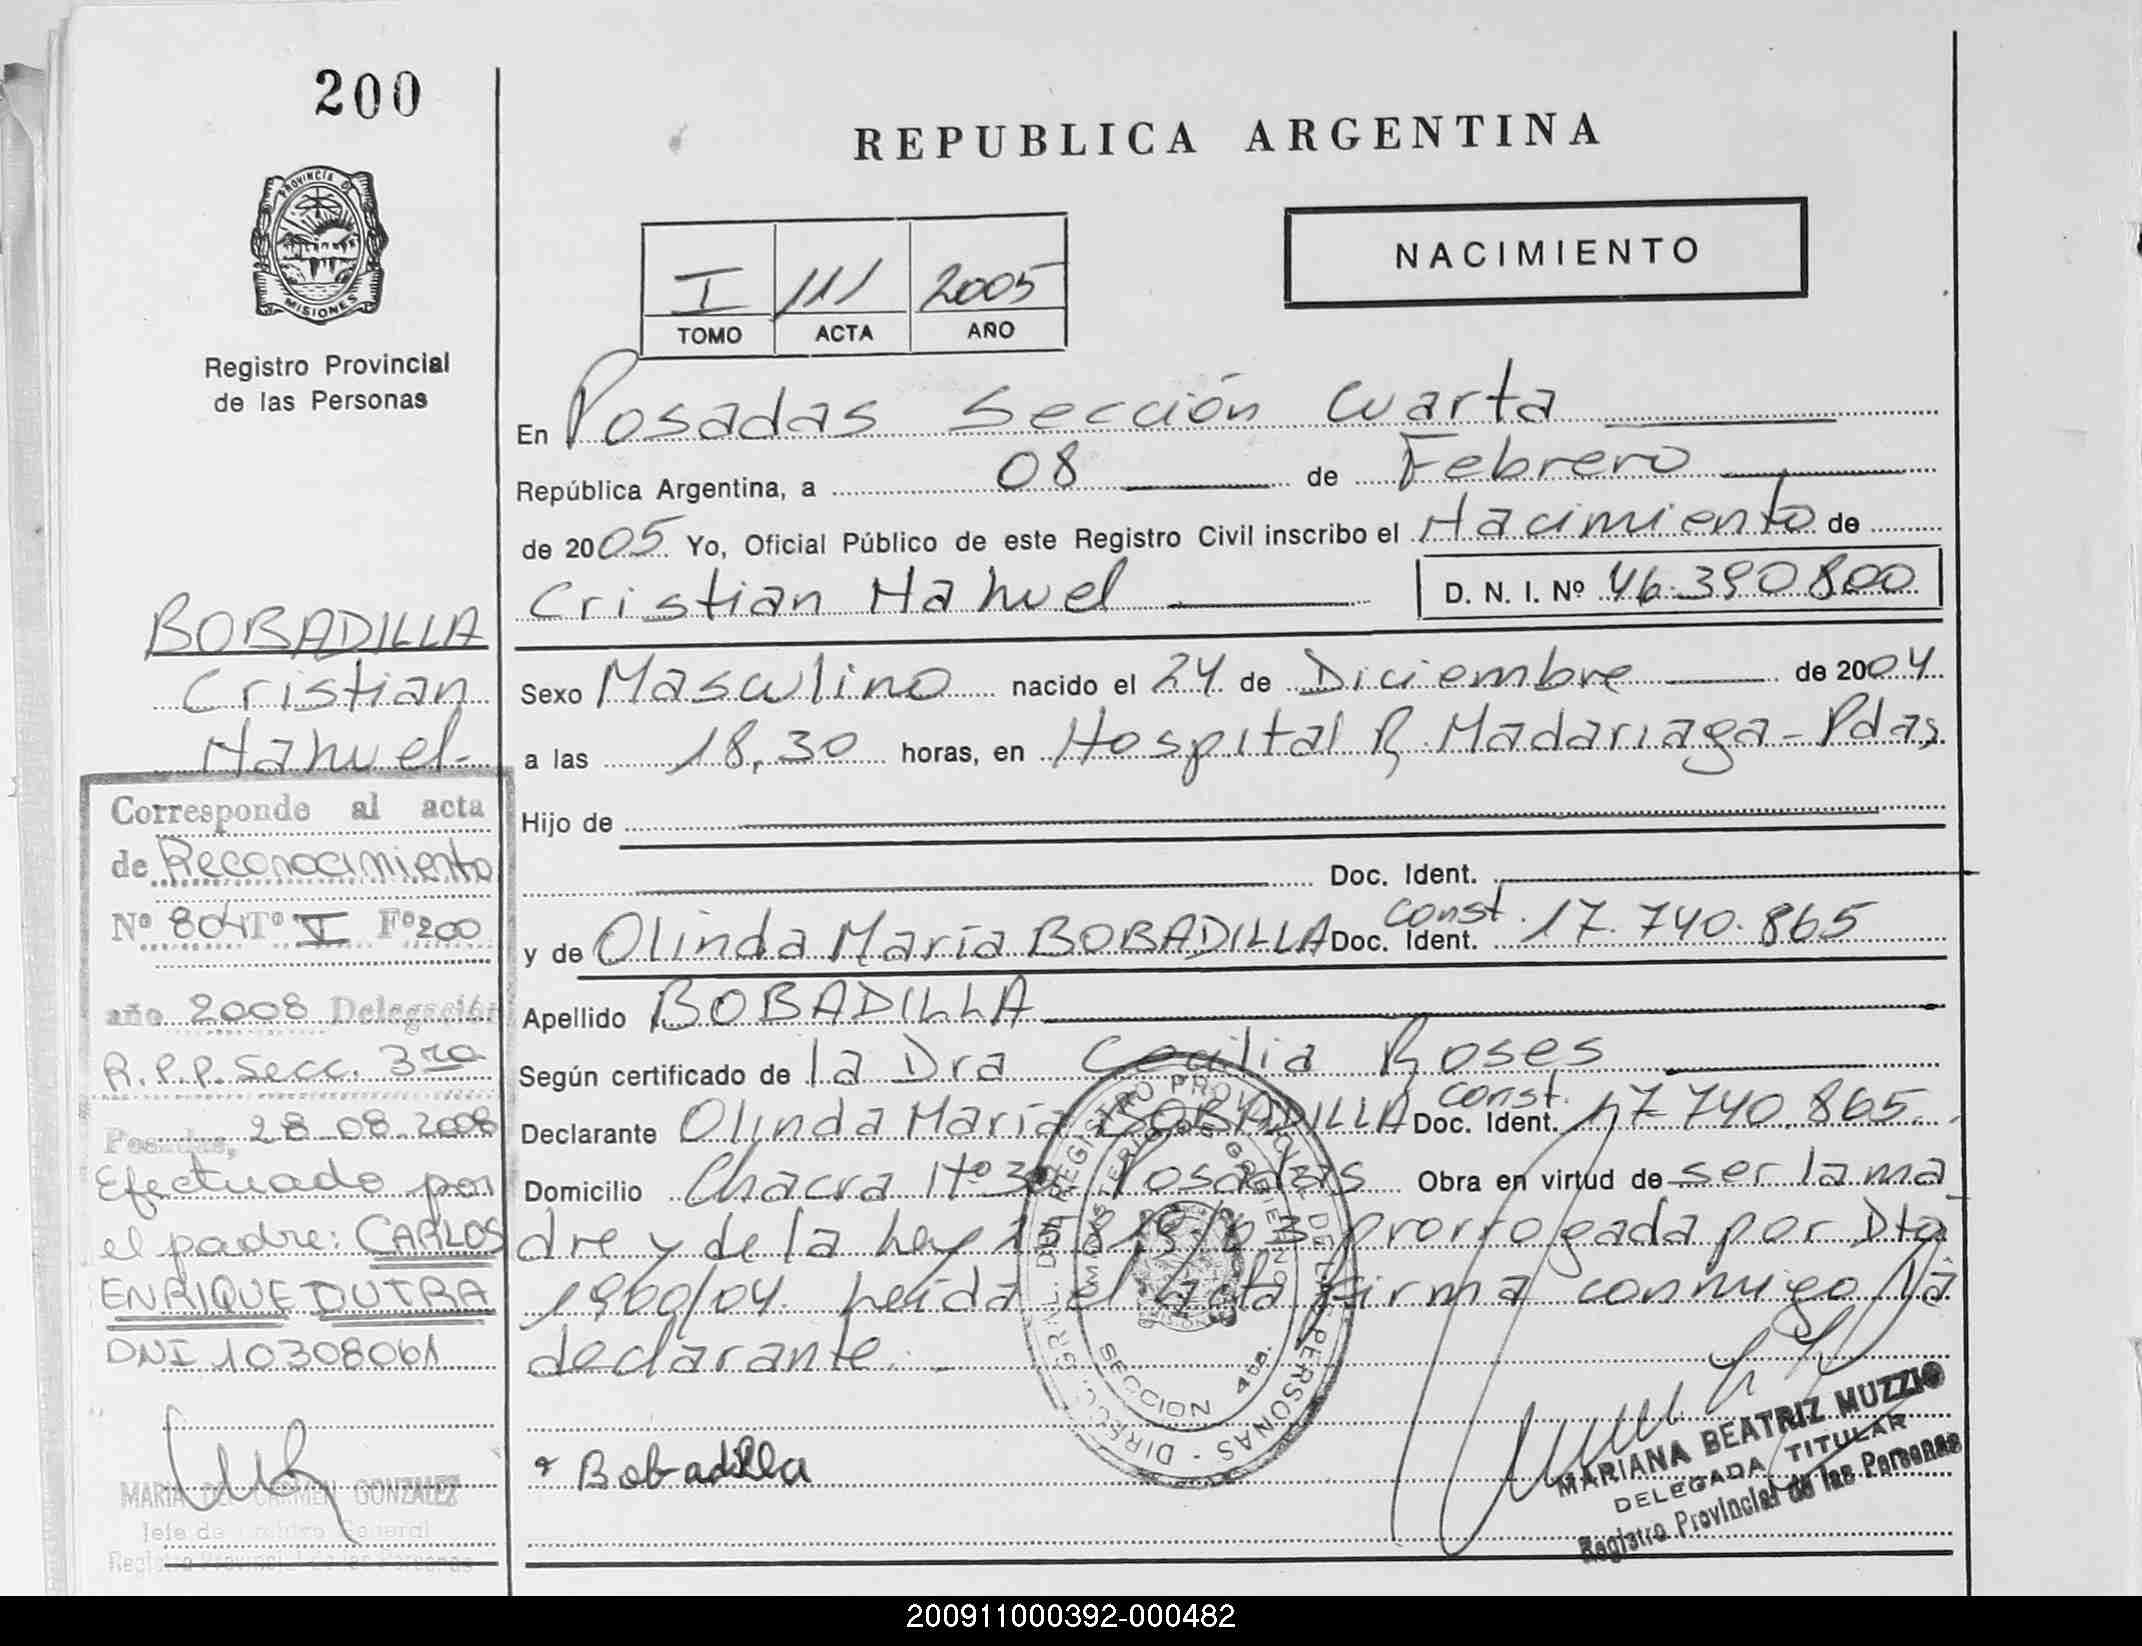 200
PROVINCIA DE
MISIONES
Registro Provincial
de las Personas
REPUBLICA ARGENTINA
NACIMIENTO
I 111 2005
TOMO ACTA AÑO
En Posadas Sección Cuarta
República Argentina, a 08 de Febrero
de 2005 Yo, Oficial Público de este Registro Civil inscribo el Nacimiento de
Cristian Nahuel D. N. I. Nº 46.390.800
Sexo Masculino nacido el 24 de Diciembre de 2004
a las 18,30 horas, en Hospital R. Madariaga - Pdas
Hijo de
Doc. Ident.
y de Olinda María BOBADILLA Doc. Ident. const. 17.740.865
Apellido BOBADILLA
Según certificado de la Dra Cecilia Roses
Declarante Olinda María BOBADILLA Doc. Ident. const. 17.740.865
Domicilio Chacra Nº Posadas Obra en virtud de ser la ma
dre y de la Ley prorrogada por Dto
1900/04. Leída el acta firma conmigo la
declarante.
Bobadilla
SECCION 4ta.
MARIANA BEATRIZ MUZZIO
DELEGADA TITULAR
Registro Provincial de las Personas
BOBADILLA
Cristian
Nahuel-
Corresponde al acta
de Reconocimiento
Nº 804 Tº I Fº 200
año 2008 Delegación
R.P.P. Secc. 3ra
Posadas, 28-08-2008
Efectuado por
el padre: CARLOS
ENRIQUE DUTRA
DNI 10308061
MARIA DEL CARMEN GONZALEZ
Jefe de Archivo General
Registro Provincial de las Personas
200911000392-000482